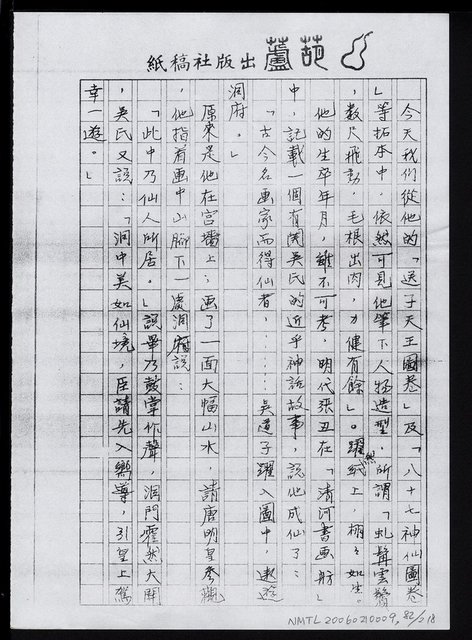 葫蘆出版社稿紙
今天我們從他的「送子天王圖卷」及「八十七神仙圖卷
」等拓本中,依然可見他筆下人物造型,所謂「虬鬚雲鬢
,數尺飛動,毛根出肉,力健有餘」。躍然紙上,栩々如生。
他的生卒年月,雖不可考,明代張丑在「清河書画舫」
中,記載一個有関吳氏的近乎神話故事,説他成仙了:
「古今名画家而得仙者,……吳道子躍入圖中,遨遊
洞府。」
原來是他在宮墻上;画了一面大幅山水,請唐明皇參觀
,他指着画中山脚下一處洞府説:
「此中乃仙人所居。」説畢乃鼓掌作聲,洞門霍然大開
,吳氏又説:「洞中美如仙境,臣請先入嚮導,引皇上駕
幸一遊。」
NMTL20060210009, 82/218